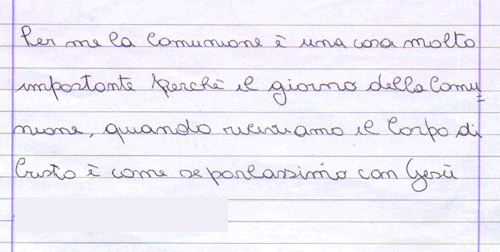 Per me la Comunione è una cosa molto
importante perchè il giorno della Comu=
nione, quando riceviamo il Corpo di
Cristo è come se parlassimo con Gesù